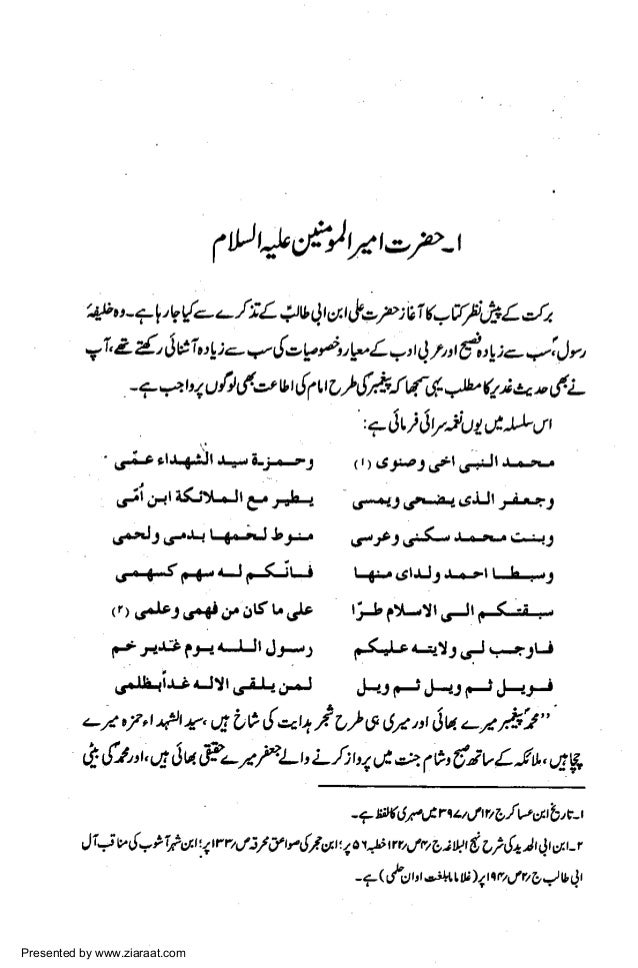 ۱۔حضرت امیر المومنین علیہ السلام
برکت کے پیش نظر کتاب کا آغاز حضرت علی ابن ابی طالبؑ کے تذکرے سے کیا جا رہا ہے۔ وہ خلیفۂ
رسولؐ، سب سے زیادہ فصیح اور عربی ادب کے معیار و خصوصیات کی سب سے زیادہ آشنائی رکھتے تھے، آپ
نے بھی حدیث غدیر کا مطلب یہی سمجھا کہ پیغمبرؐ کی طرح امام کی اطاعت بھی لوگوں پر واجب ہے۔
اس سلسلہ میں یوں نغمہ سرائی فرمائی ہے:
محمد النبی اخی وصنوی (۱) وحمزۃ سید الشھداء عمّی
وجعفر الذی یضحی ویمسی یطیر مع الملائکۃ ابن اُمّی
وبنت محمد سکنی وعرسی منوط لحمھا بدمی ولحمی
وسبطا احمد ولدای منھا فانّکم لہ سھم کسھمی
سبقتکم الی الاسلام طرّا علی ما کان من فھمی وعلمی (۲)
فاوجب لی ولایتہ علیکم رسول اللہ یوم غدیر خم
فویل ثم ویل ثم ویل لمن یلقی الالہ غداً بظلمی
’’محمدؐ پیغمبر میرے بھائی اور میری ہی طرح شجر ہدایت کی شاخ ہیں، سید الشہداء حمزہ میرے
چچا ہیں، ملائکہ کے ساتھ صبح و شام جنت میں پرواز کرنے والے جعفر میرے حقیقی بھائی ہیں، اور محمدؐ کی بیٹی
۱۔ تاریخ ابن عساکر ج/۱۲ص/۳۹۷ میں صہری کا لفظ ہے۔
۲۔ ابن ابی الحدید کی شرح نہج البلاغہ ج/۴ص/۱۲۲ خطبہ ۵۶ پر؛ ابن حجر کی صواعق محرقہ ص/۱۳۳ پر؛ ابن شہر آشوب کی مناقب آل
ابی طالب ج/۲ص/۱۹۴ پر (غلاما ما بلغت اوان حلمی) ہے۔
Presented by www.ziaraat.com